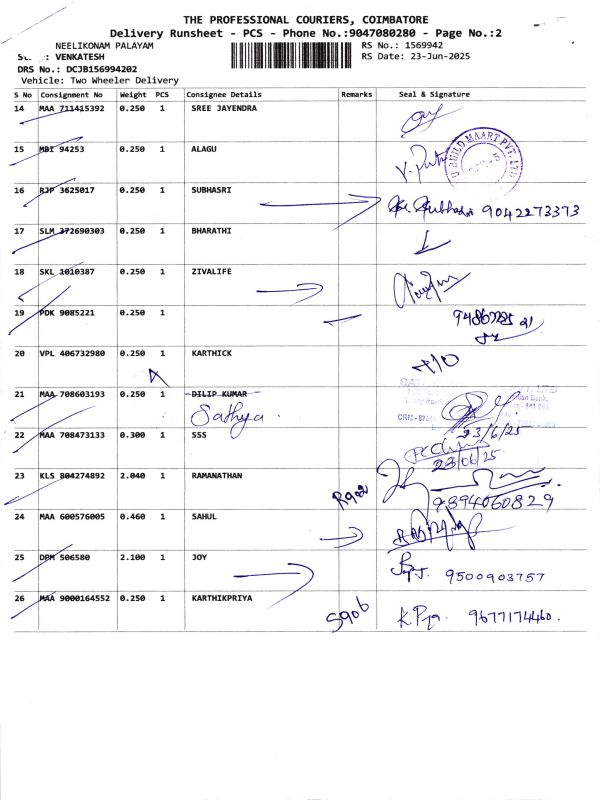 THE PROFESSIONAL COURIERS, COIMBATORE
Delivery Runsheet - PCS - Phone No.:9047080280 - Page No.:2
NEELIKONAM PALAYAM
RS No.: 1569942
: VENKATESH
RS Date: 23-Jun-2025
DRS No.: DCJB156994202
Vehicle: Two Wheeler Delivery
S No Consignment No Weight PCS Consignee Details Remarks Seal & Signature
14 MAA 711415392 0.250 1 SREE JAYENDRA
15 MBI 94253 0.250 1 ALAGU
BUILD MAART PVT. LTD
16 RJP 3625017 0.250 1 SUBHASRI
Subhasri 9042273373
17 SLM 372690303 0.250 1 BHARATHI
18 SKL 1010387 0.250 1 ZIVALIFE
19 PDK 9085221 0.250 1
20 VPL 406732980 0.250 1 KARTHICK
21 MAA 708603193 0.250 1 DILIP KUMAR
Sathya
22 MAA 708473133 0.300 1 SSS
23/6/25
23/06/25
23 KLS 804274892 2.040 1 RAMANATHAN
9894060829
24 MAA 600576005 0.460 1 SAHUL
25 DPM 506580 2.100 1 JOY
9500903757
26 MAA 9000164552 0.250 1 KARTHIKPRIYA
5906
9677174460.